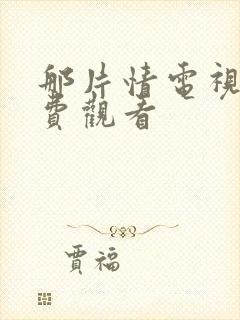 那片情電視
費觀看
賈福